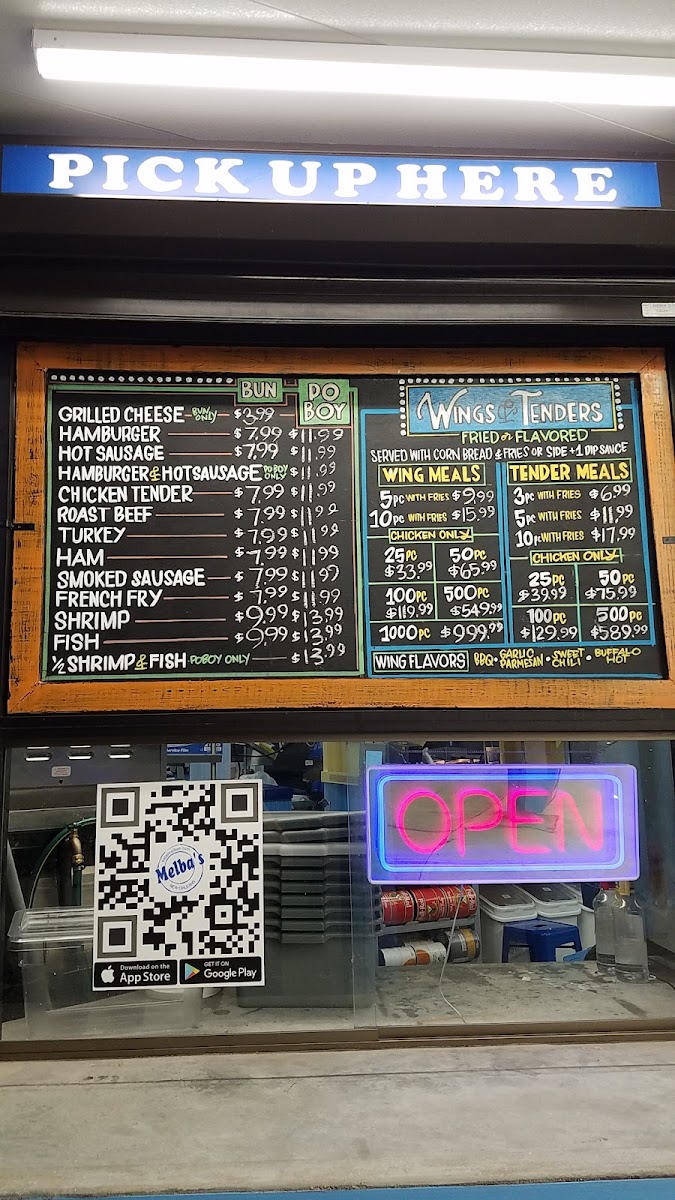 PICK UP HERE
BUN PO BOY
GRILLED CHEESE BUN ONLY $3.99
HAMBURGER $7.99 $11.99
HOT SAUSAGE $7.99 $11.99
HAMBURGER & HOT SAUSAGE PO BOY ONLY $11.99
CHICKEN TENDER $7.99 $11.99
ROAST BEEF $7.99 $11.99
TURKEY $7.99 $11.99
HAM $7.99 $11.99
SMOKED SAUSAGE $7.99 $11.99
FRENCH FRY $7.99 $11.99
SHRIMP $9.99 $13.99
FISH $9.99 $13.99
1/2 SHRIMP & FISH POBOY ONLY $13.99
WINGS & TENDERS
FRIED or FLAVORED
SERVED WITH CORN BREAD & FRIES OR SIDE + 1 DIP SAUCE
WING MEALS
5pc WITH FRIES $9.99
10pc WITH FRIES $15.99
CHICKEN ONLY
25pc $33.99
50pc $65.99
100pc $119.99
500pc $549.99
1000pc $999.99
TENDER MEALS
3pc WITH FRIES $6.99
5pc WITH FRIES $11.99
10pc WITH FRIES $17.99
CHICKEN ONLY
25pc $39.99
50pc $75.99
100pc $129.99
500pc $589.99
WING FLAVORS BBQ • GARLIC PARMESAN • SWEET CHILI • BUFFALO HOT
OPEN
Melba's
Download on the App Store
GET IT ON Google Play